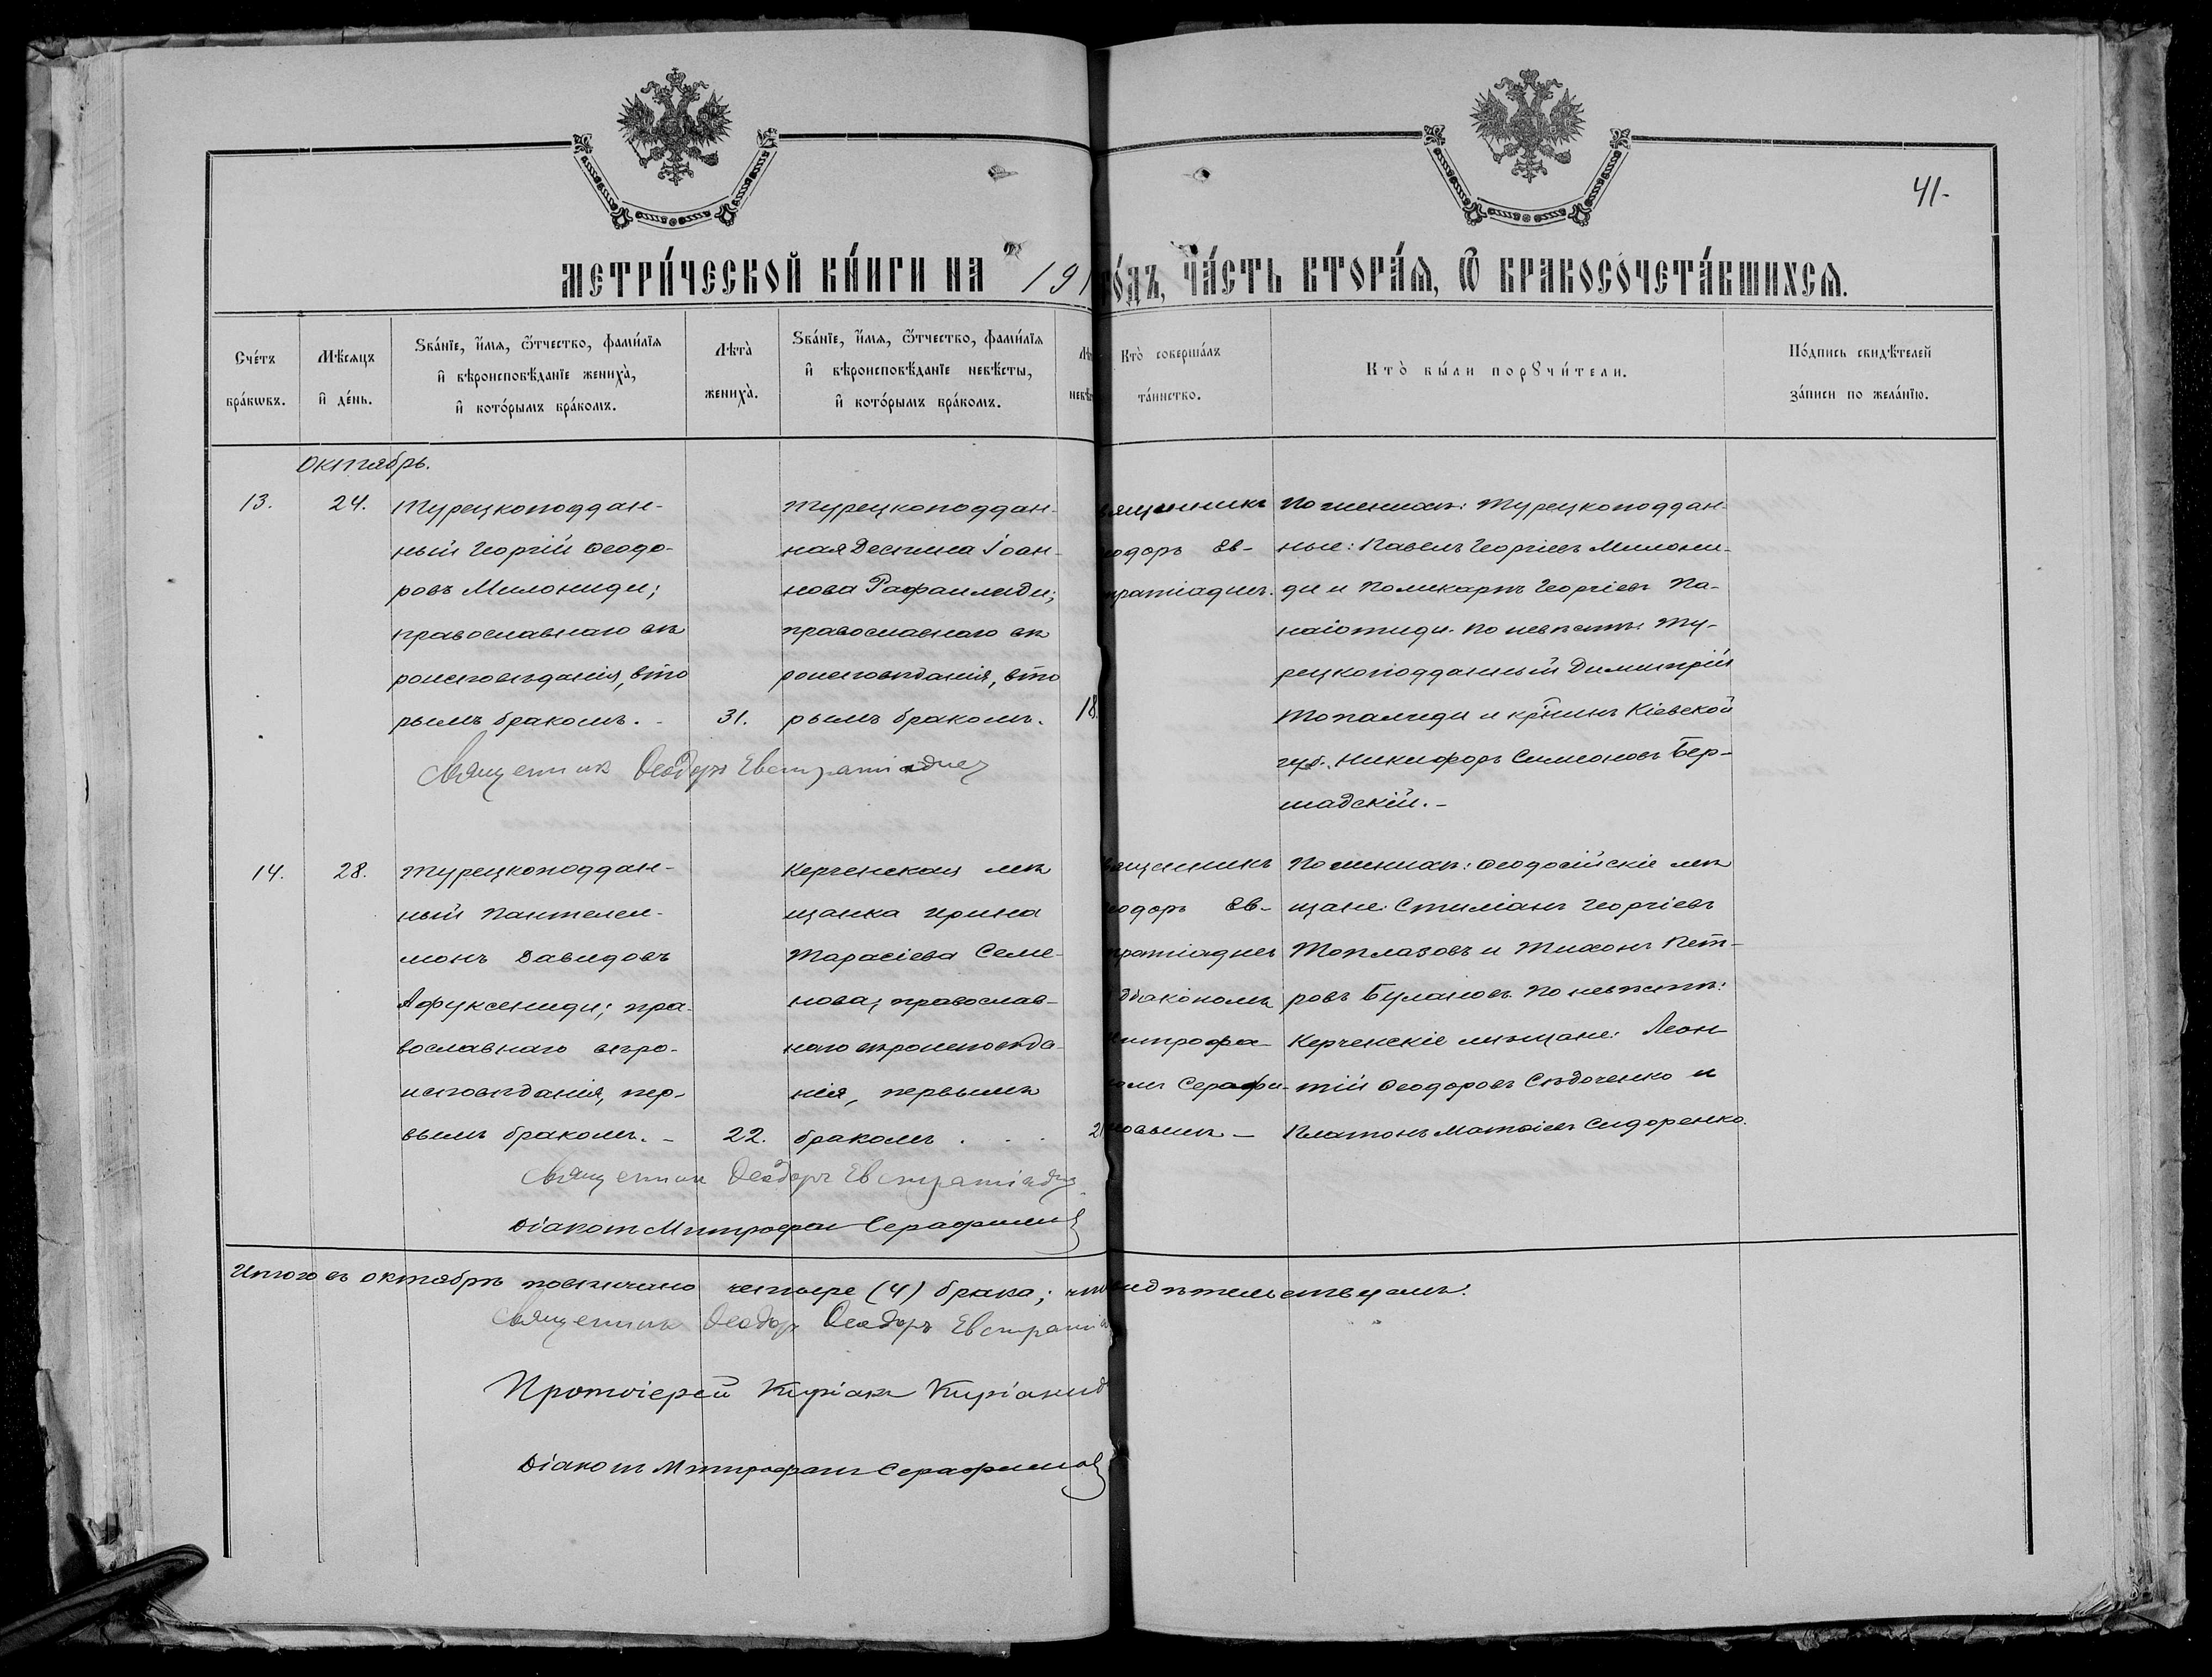 41-
МЕТРИ́ЧЕСКОЙ КНИ́ГИ НА 191 ГО́ДЪ, ЧА́СТЬ ВТОРА́Я, Ѡ БРАКОСОЧЕТА́ВШИХСЯ.
Сче́тъ бра́кѡвъ.
Мѣ́сяцъ и҆ де́нь.
Ѕва́нїе, и҆́мя, ѻ҆́тчество, фами́лїя
и҆ вѣроисповѣ́данїе жениха̀,
и҆ кото́рымъ бра́комъ.
Лѣта̀ жениха̀.
Ѕва́нїе, и҆́мя, ѻ҆́тчество, фами́лїя
и҆ вѣроисповѣ́данїе невѣ́сты,
и҆ кото́рымъ бра́комъ.
Лѣ
невѣ
Кто̀ соверша́лъ
та́инство.
Кто̀ бы́ли порꙋчи́тели.
По́дпись свидѣ́телей
за́писи по жела́нїю.
Октябрь.
13.
24.
Турецкоподдан-
ный Георгій Ѳеодо-
ровъ Милониди;
православнаго вѣ
роисповѣданія, вто
рымъ бракомъ. -
31.
Турецкоподдан-
ная Деспина Іоан-
нова Рафаилиди;
православнаго вѣ
роисповѣданія, вто
рымъ бракомъ.
18.
вященникъ
еодоръ Ев-
тратіадисъ.
По женихѣ: Турецкоподдан-
ные: Павелъ Георгіевъ Милони-
ди и Поликарпъ Георгіевъ Па-
наіотиди. По невѣстѣ: Ту-
рецкоподданный Димитрій
Топалиди и кр-нинъ Кіевской
губ. Никифоръ Симоновъ Бер-
шадскій. -
Священникъ Ѳеодоръ Евстратіадисъ
14.
28.
Турецкоподдан-
ный Пантелеи-
монъ Давидовъ
Афуксениди; пра-
вославнаго вѣро-
исповѣданія, пер-
вымъ бракомъ. -
22.
Керченская мѣ
щанка Ирина
Тарасіева Семе-
нова; православ-
наго вѣроисповѣда-
нія, первымъ
бракомъ . . .
2
вященникъ
еодоръ Ев-
тратіадисъ
діакономъ
итрофа-
омъ Серафи-
мовымъ -
По женихѣ: Ѳеодосійскіе мѣ
щане: Стиліанъ Георгіевъ
Топлазовъ и Тихонъ Пет-
ровъ Булановъ. По невѣстѣ:
Керченскіе мѣщане: Леон
тій Ѳеодоровъ Сѣдоченко и
Платонъ Матѳіевъ Сидоренко.
Священникъ Ѳеодоръ Евстратіадисъ
Діаконъ Митрофанъ Серафимовъ
Итого въ октябрѣ повѣнчано четыре (4) брака; что видѣтельствуемъ.
Священникъ Ѳеодоръ Ѳеодоръ Евстратіа
Протоіерей Киріакъ Киріакид
Діаконъ Митрофанъ Серафимовъ